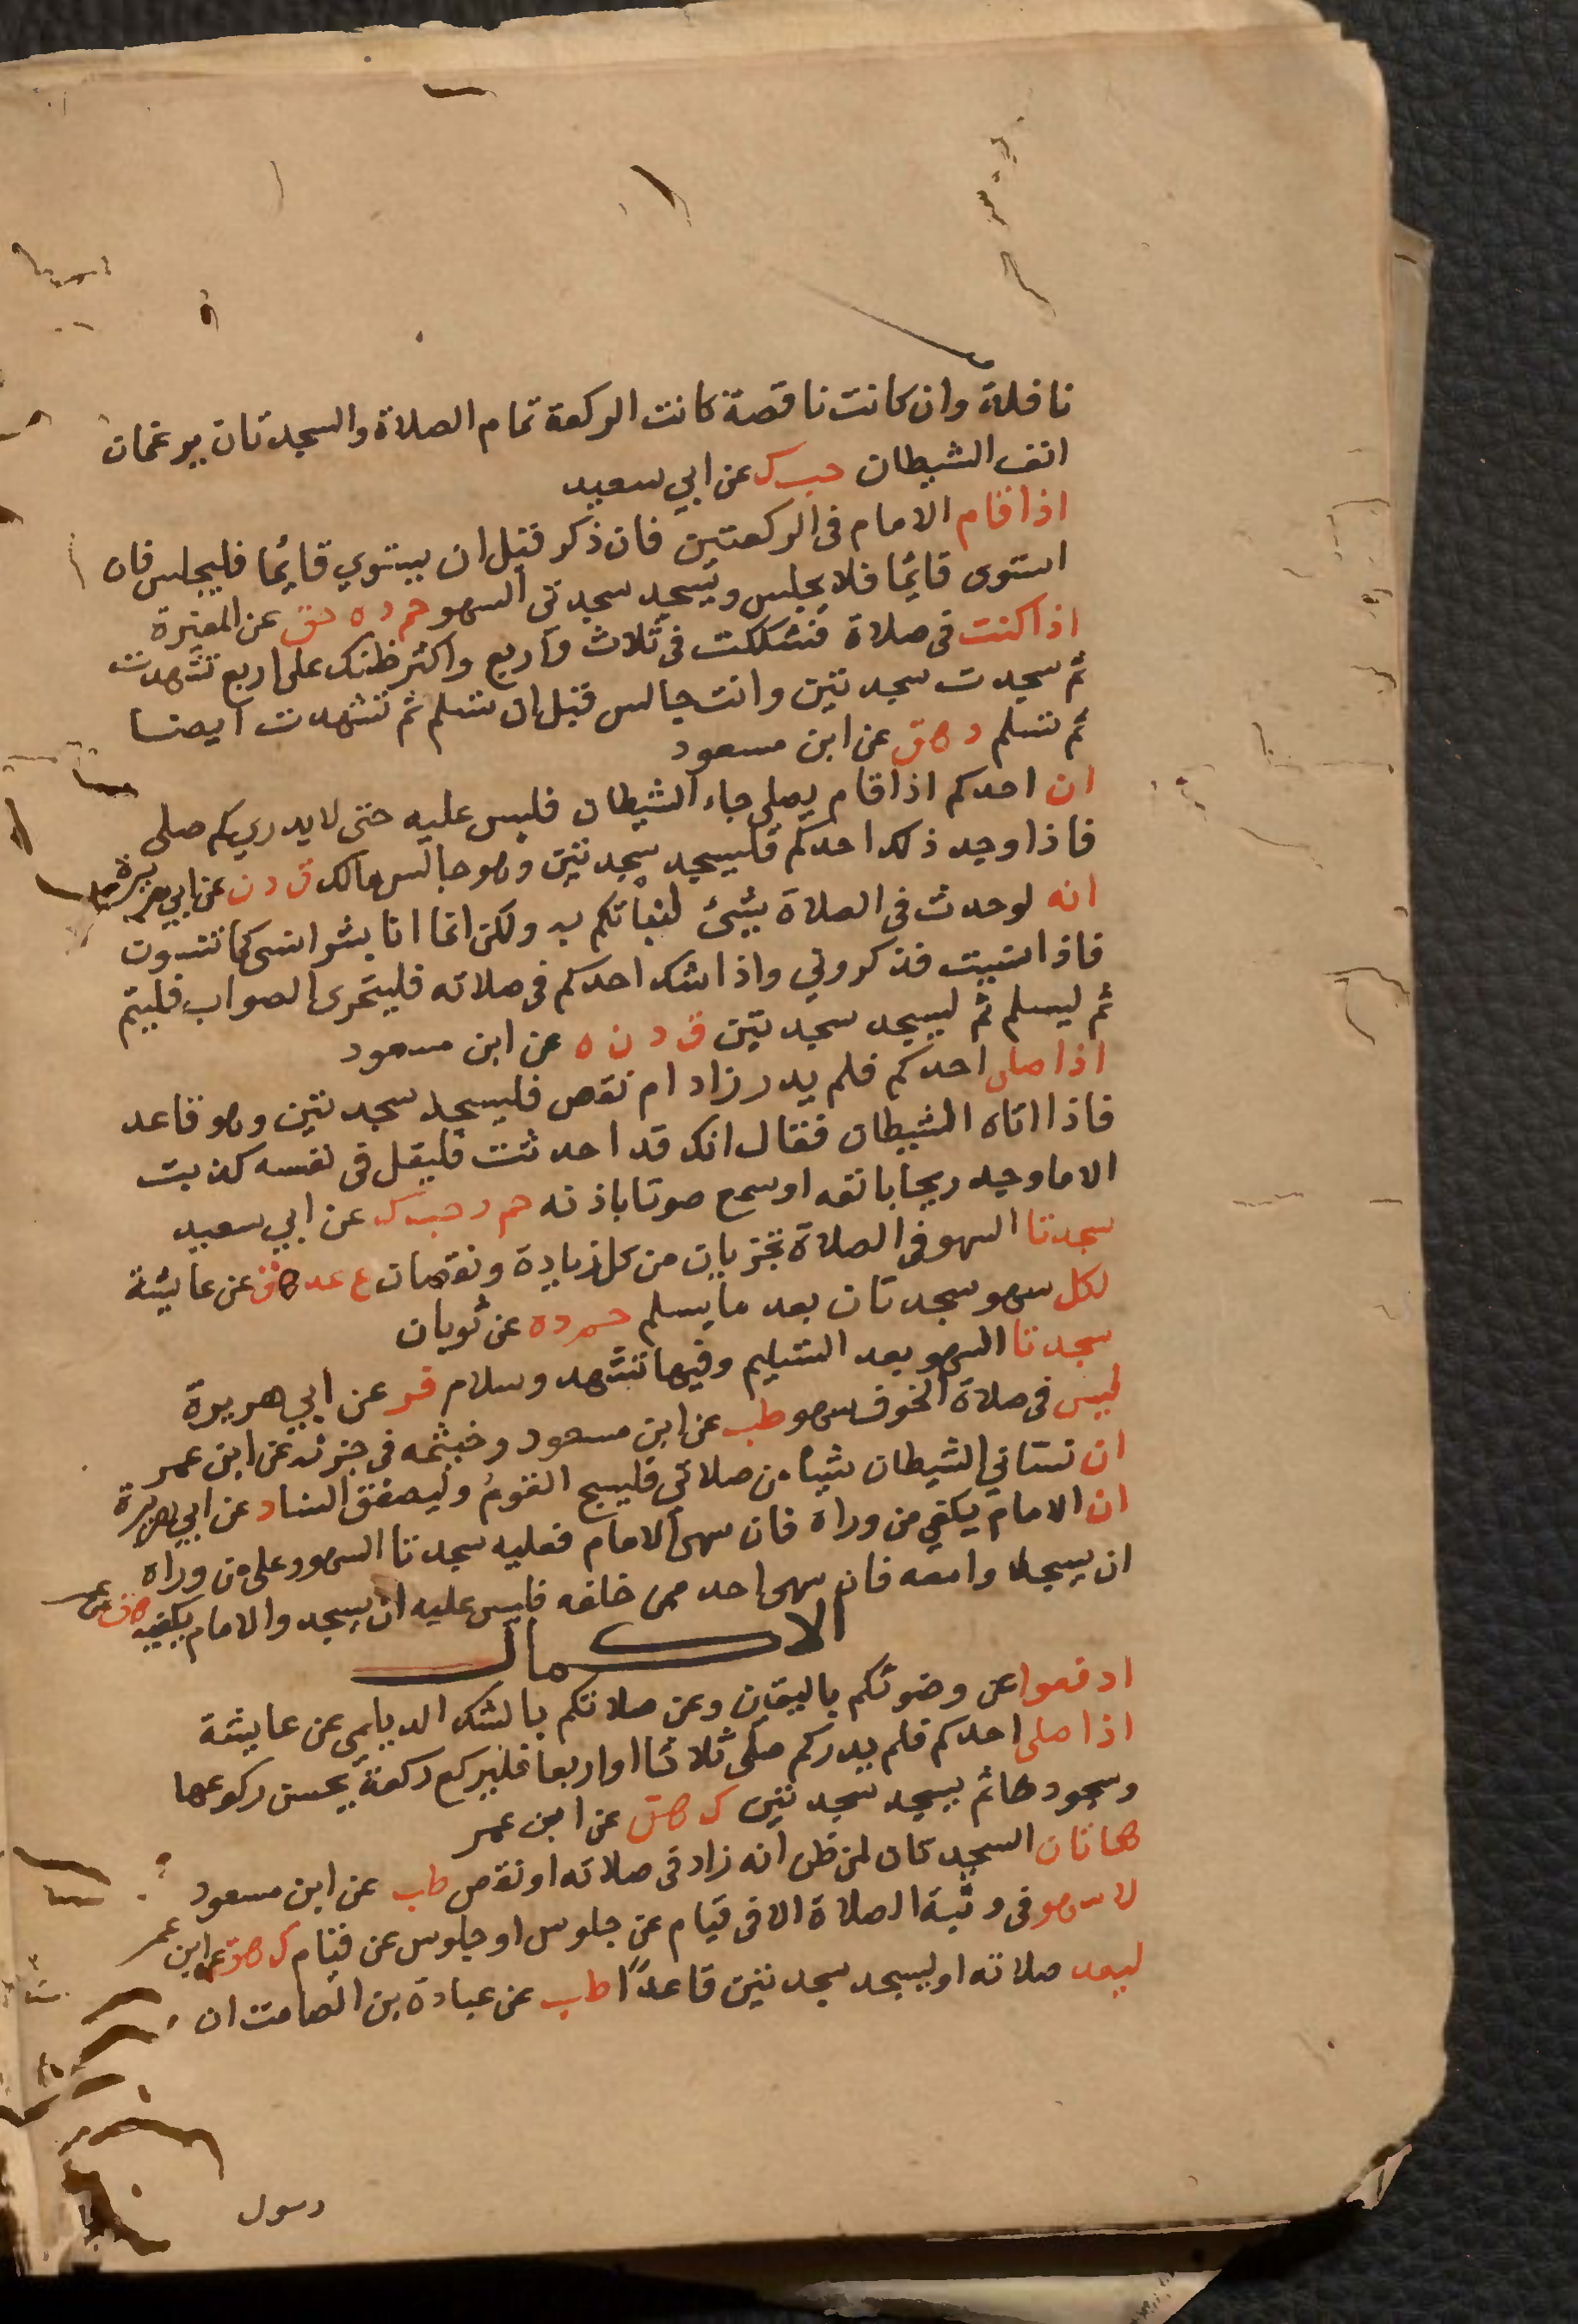 نافلة وان كانت ناقصة كانت الركعة تمام الصلاة والسجدتان يرغمان
انف الشيطان حب ك عن ابي سعيد
اذا قام الامام فى الركعتين فان ذكر قبل ان يستوي قايما فليجلس فان
استوى قايما فلا يجلس ويسجد سجدتى السهو حم د ه هق عن المغيرة
اذا كنت فى صلاة فشككت فى ثلاث واربع واكثر ظنك على اربع تشهدت
ثم سجدت سجدتين وانت جالس قبل ان تسلم ثم تشهدت ايضا
ثم تسلم د هق عن ابن مسعود
ان احدكم اذا قام يصلى جاء الشيطان فلبس عليه حتى لا يدري كم صلى
فاذا وجد ذلك احدكم فليسجد سجدتين وهو جالس مالك ق د ن عن ابي هريرة
انه لو حدث فى الصلاة بشئ لنبأتكم به ولكن انما انا بشر انسى كما تنسون
فاذا نسيت فذكروني واذا شك احدكم فى صلاته فليتحرى الصواب فليتم
ثم ليسلم ثم ليسجد سجدتين ق د ن ه عن ابن مسعود
اذا صلى احدكم فلم يدر زاد ام نقص فليسجد سجدتين وهو قاعد
فاذا اتاه الشيطان فقال انك قد احدثت فليقل فى نفسه كذبت
الا ما وجد ريحا بانفه او سمع صوتا باذنه حم د حب ك عن ابي سعيد
سجدتا السهو فى الصلاة تجزيان من كل زيادة ونقصان ع عد هق عن عايشة
لكل سهو سجدتان بعد ما يسلم حم د ه عن ثوبان
سجدتا السهو بعد التسليم وفيها تشهد وسلام فر عن ابي هريرة
ليس فى صلاة الخوف سهو طب عن ابن مسعود وخيثمه فى جزئه عن ابن عمر
ان نساني الشيطان شيا من صلاتي فليسبح القوم وليصفق النساء د عن ابي هريرة
ان الامام يكفي من وراه فان سهى الامام فعليه سجدتا السهو وعلى من وراه
ان يسجدوا معه فان سهى احد ممن خلفه فليس عليه ان يسجد والامام يكفيه هق عن عمر
الاكمال
ادفعوا عن وضوئكم باليقين وعن صلاتكم بالشك الديلمي عن عايشة
اذا صلى احدكم فلم يدر كم صلى ثلاثا او اربعا فليركع ركعة يحسن ركوعها
وسجودها ثم يسجد سجدتين ك هق عن ابن عمر
هاتان السجدتان لمن ظن انه زاد فى صلاته او نقص طب عن ابن مسعود
لا سهو فى وثبة الصلاة الا فى قيام عن جلوس او جلوس عن قيام ك هق عن ابن عمر
ليعد صلاته او ليسجد سجدتين قاعدًا طب عن عبادة بن الصامت ان
رسول